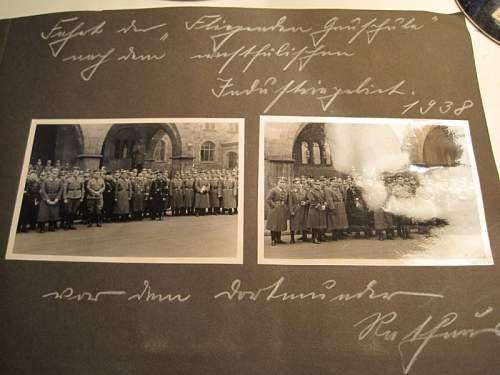 Fahrt der "Fliegenden Gauschule"
nach dem westfälischen
Industriegebiet.
1938
vor dem Dortmunder
Rathaus